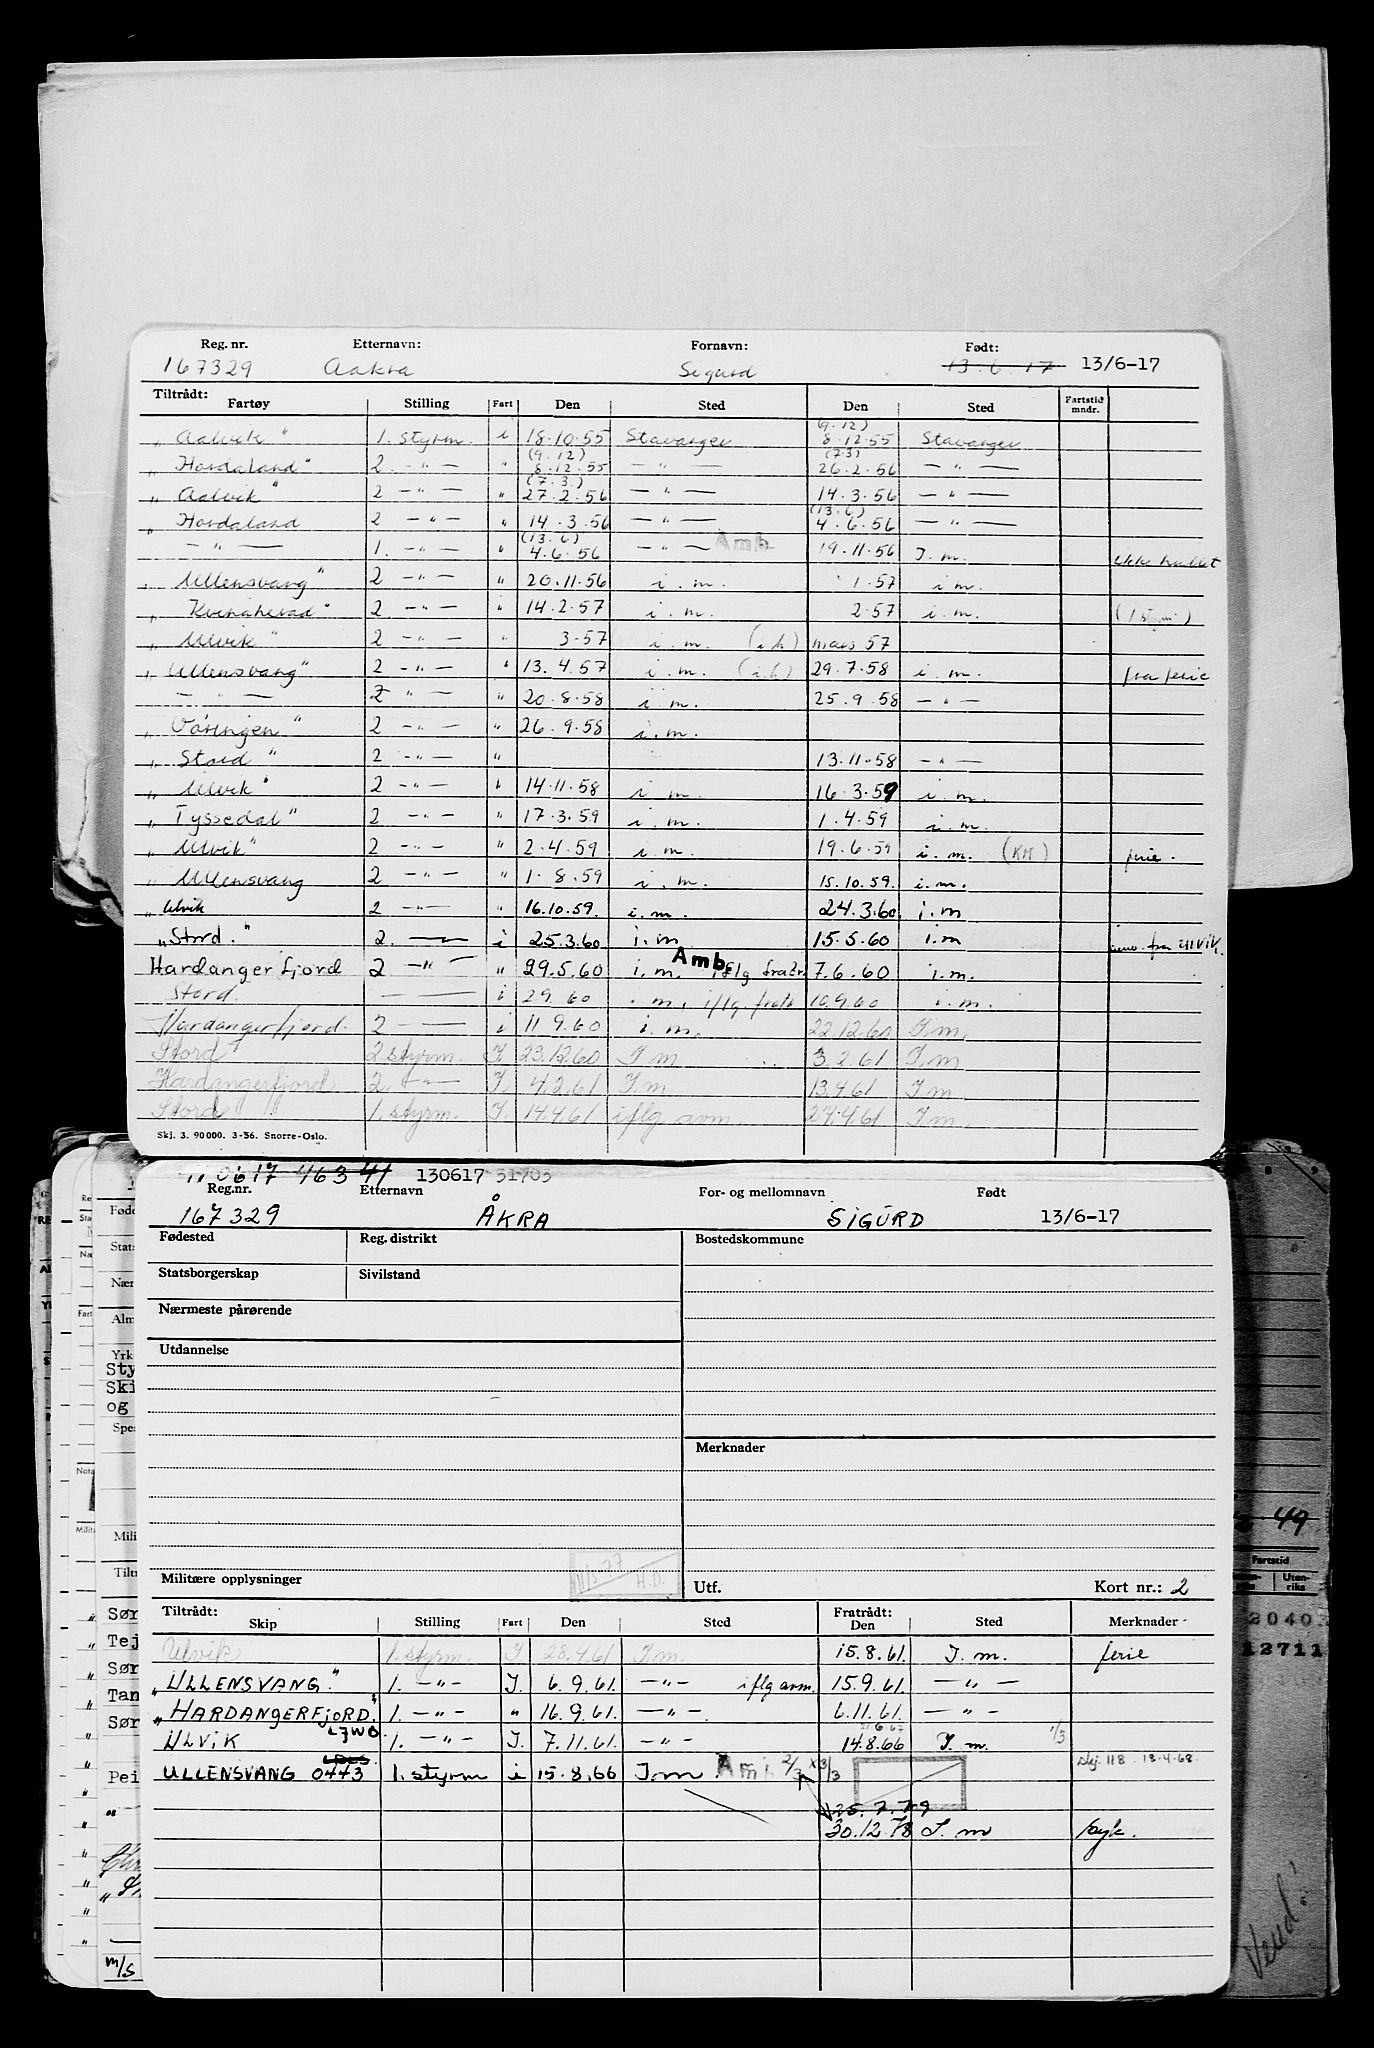 Reg. nr. Etternavn: Fornavn: Født:
167329 Aakra Sigurd 13-6-17 13/6-17
Tiltrådt:
Fartøy Stilling Fart Den Sted Den Sted Fartstid mndr.
(9.12)
„ Aalvik " 1. styrm. i 18.10.55 Stavanger 8.12.55 Stavanger
(9.12) (7.3)
„ Hordaland " 2. — " — " 8.12.55 — " — 26.2.56 — " —
(7.3.)
„ Aalvik " 2 — " — " 27.2.56 — " — 14.3.56 — " —
(13.6)
„ Hordaland 2 — " — " 14.3.56 — " — 4.6.56 — " —
(13.6)
— " — 1. — " — " 4.6.56 — " — Amb 19.11.56 I.m. ikke hullet
„ Ullensvang " 2 — " — " 20.11.56 i.m. 1.57 i.m.
„ Kvinnherad " 2 — " — " 14.2.57 i.m. 2.57 i.m. (1 styrm.)
„ Ulvik " 2 — " — " 3-57 i.m. (i.h) mars 57
„ Ullensvang " 2 — " — " 13.4.57 i.m. (i.h) 29.7.58 i.m. fra ferie
— " — 2 " — " 20.8.58 i.m. 25.9.58 — " —
„ Vöringen " 2 — " — " 26.9.58 i.m.
„ Stord " 2 — " — " 13.11.58 — " —
„ Ulvik " 2 — " — " 14.11.58 i.m. 16.3.59 i.m.
„ Tyssedal " 2 — " — " 17.3.59 i.m. 1.4.59 i.m.
„ Ulvik " 2 — " — " 2.4.59 i.m. 19.6.59 i.m. (KM) ferie.
„ Ullensvang 2 — " — " 1.8.59 i.m. 15.10.59. i.m.
„ Ulvik 2 — " — " 16.10.59. i.m. 24.3.60 i.m
„ Stord. " 2. — i 25.3.60 i.m 15.5.60 i.m fra Ulvik.
Hardangerfjord 2 — " — " 29.5.60 i.m. Amb. iflg fratr. 7.6.60 i.m.
Stord. — i 29. 60 .m, iflg. fratr 10.9.60 i.m.
Hardangerfjord. 2 — i 11 9.60 i.m. 22.12.60 I.m.
Stord 2 styrm. I 23.12.60 I.m 3.2.61 I.m
Hardangerfjord 2. — " — I. 4.2.61 I.m 13.4.61 I.m
Stord 1. styrm. I. 14.4.61 iflg avm. 27.4.61 I.m.
Skj. 3. 90 000. 3-56. Snorre-Oslo.
110617 46341 130617 31703
Reg.nr. Etternavn For- og mellomnavn Født
167329 ÅKRA SIGURD 13/6-17
Fødested Reg. distrikt Bostedskommune
Statsborgerskap Sivilstand
Nærmeste pårørende
Utdannelse
Merknader
11/3-77 H.D.
Militære opplysninger Utf. Kort nr.: 2
Tiltrådt: Fratrådt:
Skip Stilling Fart Den Sted Den Sted Merknader
Ulvik 1. styrm. I 28.4.61 I.m. 15.8.61. I.m. ferie
„ ULLENSVANG " 1. — " — I. 6.9.61. — " — iflg avm. 15.9.61. — " —
„ HARDANGERFJORD. " 1. — " — " 16.9.61. — " — 6.11.61. — " —
ULVIK LJWO. 1. — " — I. 7.11.61. — " — 14.8.66 I.m. 1/3
ULLENSVANG 0443 1. styrm i 15.8.66 I.m Amb 2/3 x3/3 skj. 118 13-4-68.
25.7.79
30.12.78 I.m syk.
Sty
Ski
og
Sør
Tej
Sør
Tan
Sør
Pei
m/s
49
Fartstid
2040
12711
Vend!